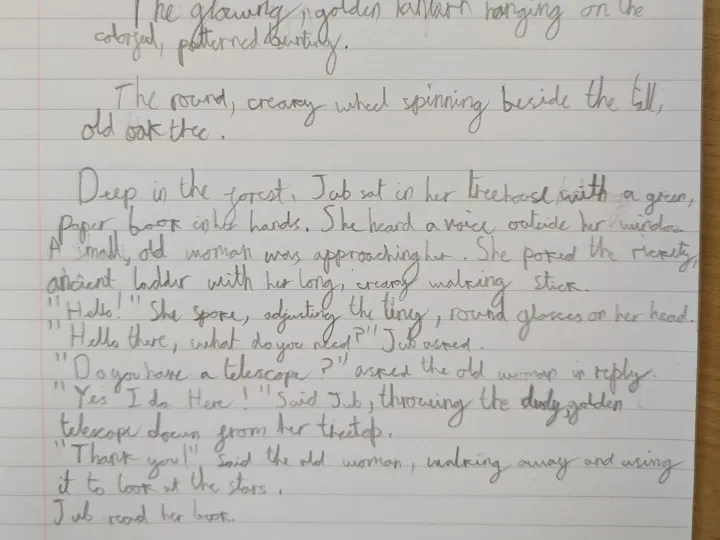 The glowing, golden lantarn hanging on the
colorful, patterned bunting.
The round, creamy wheel spinning beside the tall,
old oak tree.
Deep in the forest, Jub sat in her treehouse with a green,
paper book in her hands. She heard a voice outside her window.
A small, old woman was approaching her. She poked the rickety,
ancient ladder with her long, creamy walking stick.
"Hello!" She spoke, adjusting the tiny, round glasses on her head.
"Hello there, what do you need?" Jub asked.
"Do you have a telescope?" asked the old woman in reply.
"Yes I do Here!" Said Jub, throwing the golden
telescope down from her treetop.
"Thank you!" said the old woman, walking away and using
it to look at the stars.
Jub read her book.